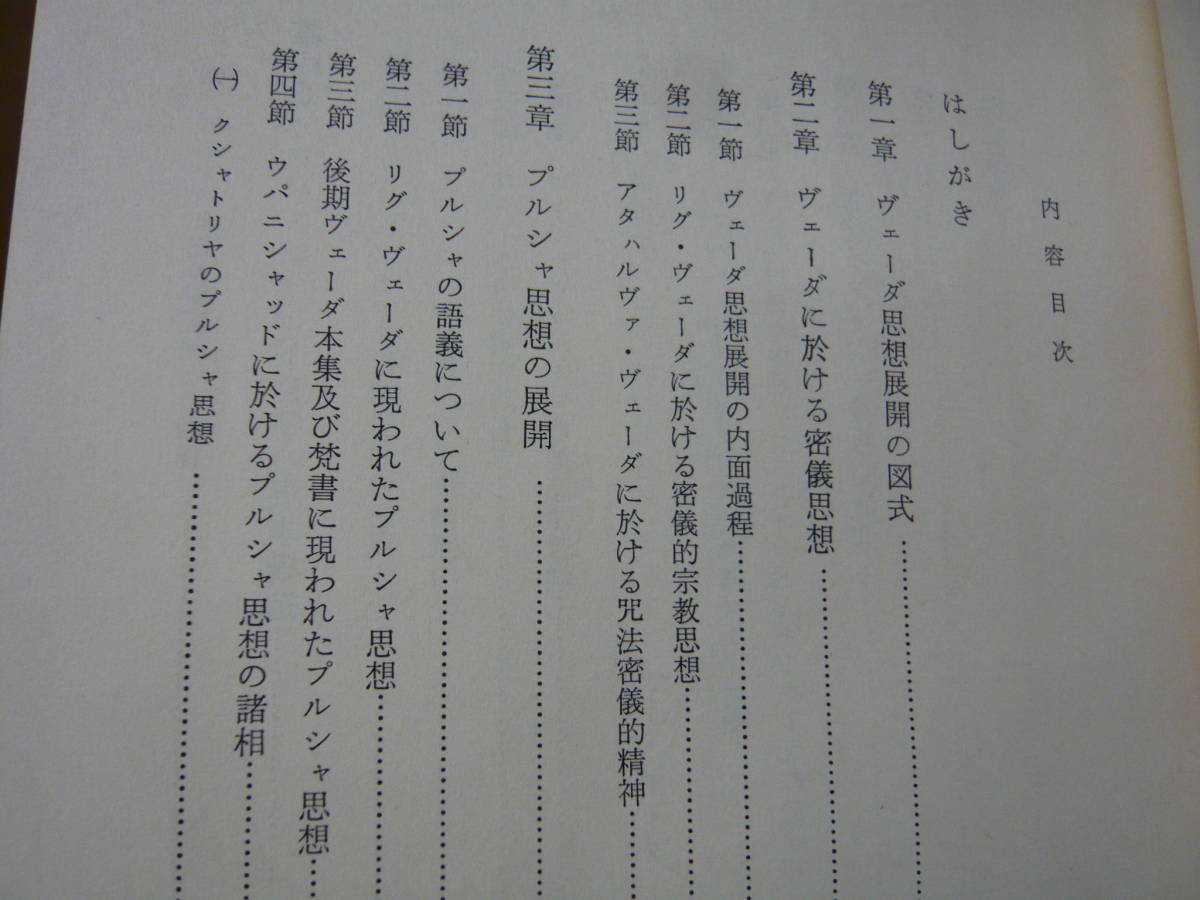 内容目次
はしがき
第一章 ヴェーダ思想展開の図式…………
第二章 ヴェーダに於ける密儀思想…………
第一節 ヴェーダ思想展開の内面過程…………
第二節 リグ・ヴェーダに於ける密儀的宗教思想…………
第三節 アタハルヴァ・ヴェーダに於ける咒法密儀的精神…………
第三章 プルシャ思想の展開…………
第一節 プルシャの語義について…………
第二節 リグ・ヴェーダに現われたプルシャ思想…………
第三節 後期ヴェーダ本集及び梵書に現われたプルシャ思想……
第四節 ウパニシャッドに於けるプルシャ思想の諸相…………
㈠ クシャトリヤのプルシャ思想…………